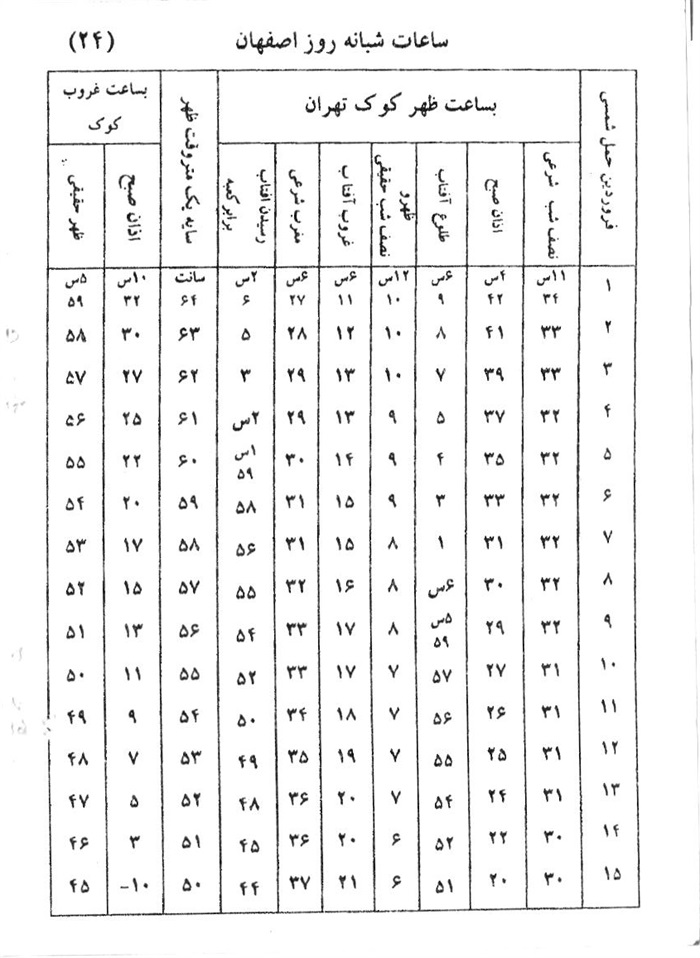 ساعات شبانه روز اصفهان (۲۴)
فروردین حمل شمسی بساعت ظهر کوک تهران سایه یک متر وقت ظهر بساعت غروب کوک
نصف شب شرعی اذان صبح طلوع آفتاب ظهر و نصف شب حقیقی غروب آفتاب مغرب شرعی رسیدن افتاب برابر کعبه اذان صبح ظهر حقیقی
۱ ۱۱س ۴س ۶س ۱۲س ۶س ۶س ۲س سانت ۱۰س ۵س
۳۴ ۴۲ ۹ ۱۰ ۱۱ ۲۷ ۶ ۶۴ ۳۲ ۵۹
۲ ۳۳ ۴۱ ۸ ۱۰ ۱۲ ۲۸ ۵ ۶۳ ۳۰ ۵۸
۳ ۳۳ ۳۹ ۷ ۱۰ ۱۳ ۲۹ ۳ ۶۲ ۲۷ ۵۷
۴ ۳۲ ۳۷ ۵ ۹ ۱۳ ۲۹ ۲س ۶۱ ۲۵ ۵۶
۵ ۳۲ ۳۵ ۴ ۹ ۱۴ ۳۰ ۱س ۶۰ ۲۲ ۵۵
۵۹
۶ ۳۲ ۳۳ ۳ ۹ ۱۵ ۳۱ ۵۸ ۵۹ ۲۰ ۵۴
۷ ۳۲ ۳۱ ۱ ۸ ۱۵ ۳۱ ۵۶ ۵۸ ۱۷ ۵۳
۸ ۳۲ ۳۰ ۶س ۸ ۱۶ ۳۲ ۵۵ ۵۷ ۱۵ ۵۲
۹ ۳۲ ۲۹ ۵س ۸ ۱۷ ۳۳ ۵۴ ۵۶ ۱۳ ۵۱
۵۹
۱۰ ۳۱ ۲۷ ۵۷ ۷ ۱۷ ۳۳ ۵۲ ۵۵ ۱۱ ۵۰
۱۱ ۳۱ ۲۶ ۵۶ ۷ ۱۸ ۳۴ ۵۰ ۵۴ ۹ ۴۹
۱۲ ۳۱ ۲۵ ۵۵ ۷ ۱۹ ۳۵ ۴۹ ۵۳ ۷ ۴۸
۱۳ ۳۱ ۲۴ ۵۴ ۷ ۲۰ ۳۶ ۴۸ ۵۲ ۵ ۴۷
۱۴ ۳۰ ۲۲ ۵۲ ۶ ۲۰ ۳۶ ۴۵ ۵۱ ۳ ۴۶
۱۵ ۳۰ ۲۰ ۵۱ ۶ ۲۱ ۳۷ ۴۴ ۵۰ ۱۰- ۴۵